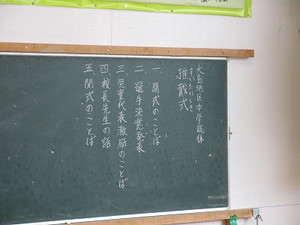 大島地区中学総体
推戴式
すいたいしき
一、開式のことば
二、選手決意発表
三、児童代表激励のことば
四、校長先生の話
五、閉式のことば